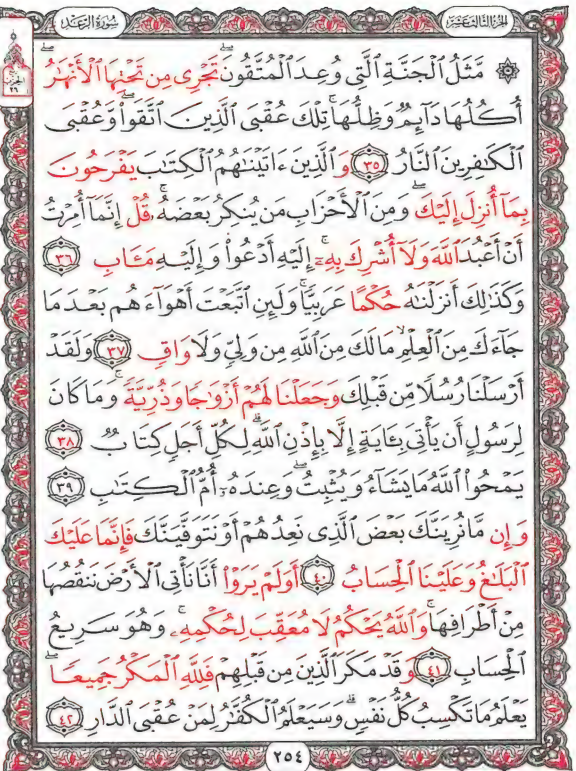 سُورَةُ الرَّعۡدِ
الجُزۡءُ الثَّالِثَ عَشَرَ
الحزب
٢٦
۞ مَّثَلُ ٱلۡجَنَّةِ ٱلَّتِي وُعِدَ ٱلۡمُتَّقُونَۖ تَجۡرِي مِن تَحۡتِهَا ٱلۡأَنۡهَٰرُۖ
أُكُلُهَا دَآئِمٞ وَظِلُّهَاۚ تِلۡكَ عُقۡبَى ٱلَّذِينَ ٱتَّقَواْۖ وَّعُقۡبَى
ٱلۡكَٰفِرِينَ ٱلنَّارُ ٣٥ وَٱلَّذِينَ ءَاتَيۡنَٰهُمُ ٱلۡكِتَٰبَ يَفۡرَحُونَ
بِمَآ أُنزِلَ إِلَيۡكَۖ وَمِنَ ٱلۡأَحۡزَابِ مَن يُنكِرُ بَعۡضَهُۥۚ قُلۡ إِنَّمَآ أُمِرۡتُ
أَنۡ أَعۡبُدَ ٱللَّهَ وَلَآ أُشۡرِكَ بِهِۦٓۚ إِلَيۡهِ أَدۡعُواْ وَإِلَيۡهِ مَـَٔابِ ٣٦
وَكَذَٰلِكَ أَنزَلۡنَٰهُ حُكۡمًا عَرَبِيّٗاۚ وَلَئِنِ ٱتَّبَعۡتَ أَهۡوَآءَهُم بَعۡدَ مَا
جَآءَكَ مِنَ ٱلۡعِلۡمِ مَا لَكَ مِنَ ٱللَّهِ مِن وَلِيّٖ وَلَا وَاقٖ ٣٧ وَلَقَدۡ
أَرۡسَلۡنَا رُسُلٗا مِّن قَبۡلِكَ وَجَعَلۡنَا لَهُمۡ أَزۡوَٰجٗا وَذُرِّيَّةٗۚ وَمَا كَانَ
لِرَسُولٍ أَن يَأۡتِيَ بِـَٔايَةٍ إِلَّا بِإِذۡنِ ٱللَّهِۗ لِكُلِّ أَجَلٖ كِتَابٞ ٣٨
يَمۡحُواْ ٱللَّهُ مَا يَشَآءُ وَيُثۡبِتُۖ وَعِندَهُۥٓ أُمُّ ٱلۡكِتَٰبِ ٣٩
وَإِن مَّا نُرِيَنَّكَ بَعۡضَ ٱلَّذِي نَعِدُهُمۡ أَوۡ نَتَوَفَّيَنَّكَ فَإِنَّمَا عَلَيۡكَ
ٱلۡبَلَٰغُ وَعَلَيۡنَا ٱلۡحِسَابُ ٤٠ أَوَلَمۡ يَرَوۡاْ أَنَّا نَأۡتِي ٱلۡأَرۡضَ نَنقُصُهَا
مِنۡ أَطۡرَافِهَاۚ وَٱللَّهُ يَحۡكُمُ لَا مُعَقِّبَ لِحُكۡمِهِۦۚ وَهُوَ سَرِيعُ
ٱلۡحِسَابِ ٤١ وَقَدۡ مَكَرَ ٱلَّذِينَ مِن قَبۡلِهِمۡ فَلِلَّهِ ٱلۡمَكۡرُ جَمِيعٗاۖ
يَعۡلَمُ مَا تَكۡسِبُ كُلُّ نَفۡسٖۗ وَسَيَعۡلَمُ ٱلۡكُفَّٰرُ لِمَنۡ عُقۡبَى ٱلدَّارِ ٤٢
٢٥٤